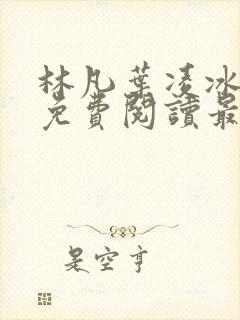 林凡葉凌冰
免費閱讀最
是空亨